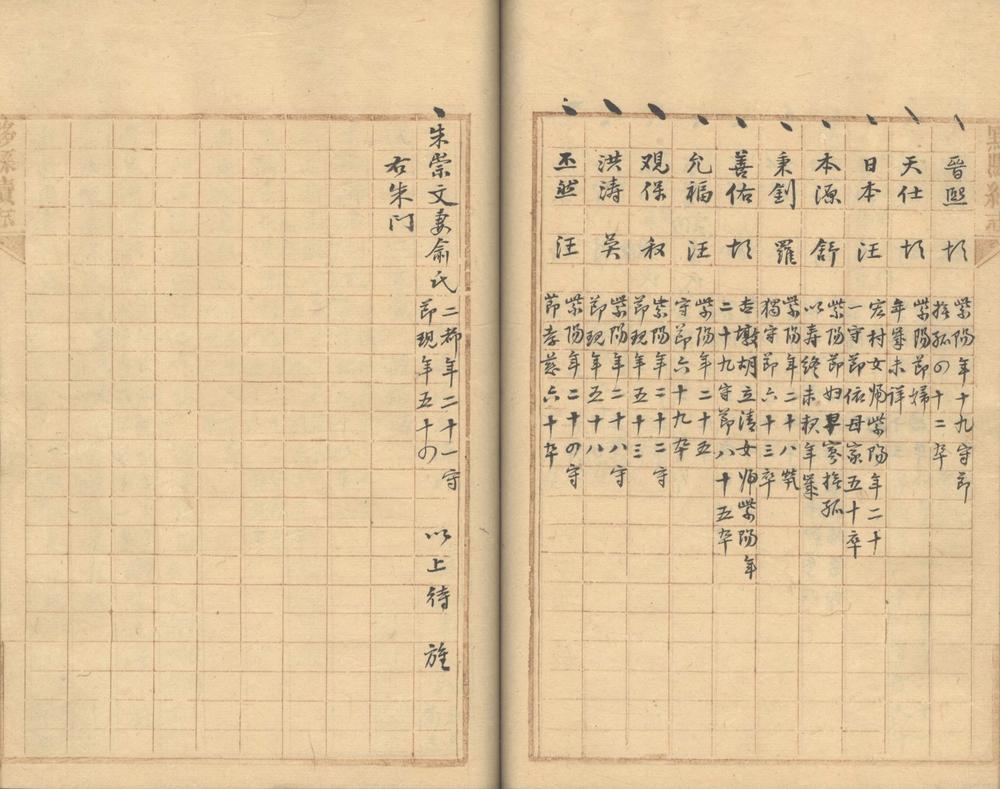 晉熙
紫陽年十九守節
撫孤四十二卒
天仕
紫陽節婦
年歲未詳
日本 汪
宏村女归紫陽年二十
一守節依母家五十卒
本源 舒
紫陽節妇早寡撫孤
以寿终未年歲
秉釗 羅
紫陽年二十八煢
獨守節六十三卒
善佑
杏墩胡立清女归紫陽年
二十九守節八十五卒
允福 汪
紫陽年二十五
守節六十九卒
观保
紫陽年二十二守
節現年五十三
洪涛 吴
紫陽年二十八守
節現年五十八
丕然 汪
紫陽年二十四守
節孝慈六十卒
朱崇文妻俞氏
二都年二十一守
節現年五十四
以上待 旌
右朱门